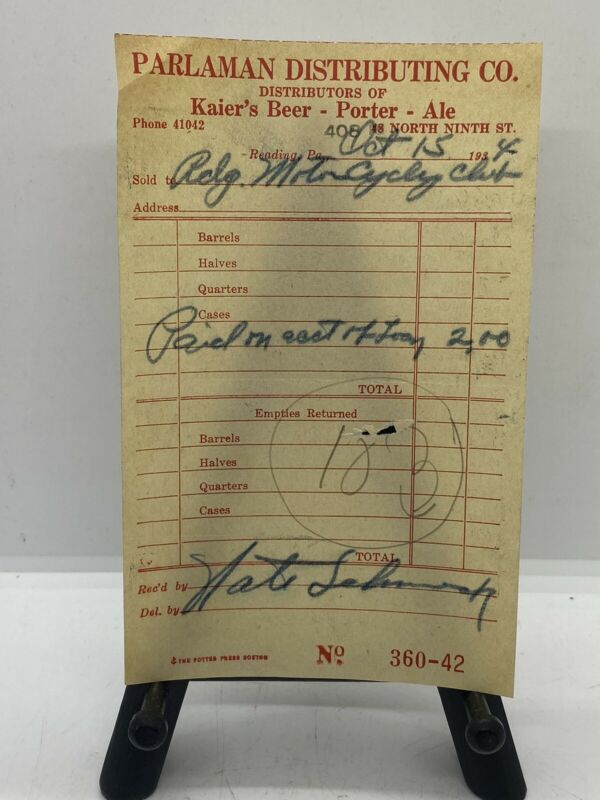 PARLAMAN DISTRIBUTING CO.
DISTRIBUTORS OF
Kaier's Beer - Porter - Ale
Phone 41042
408 48 NORTH NINTH ST.
Reading, Pa. Oct 15 1934
Sold to Rdg. Motor Cycle Club
Address
Barrels
Halves
Quarters
Cases
Paid on acct of 2,00
TOTAL
Empties Returned
Barrels
Halves
Quarters
Cases
183
TOTAL
Rec'd by
Del. by
THE POTTER PRESS BOSTON
No 360-42